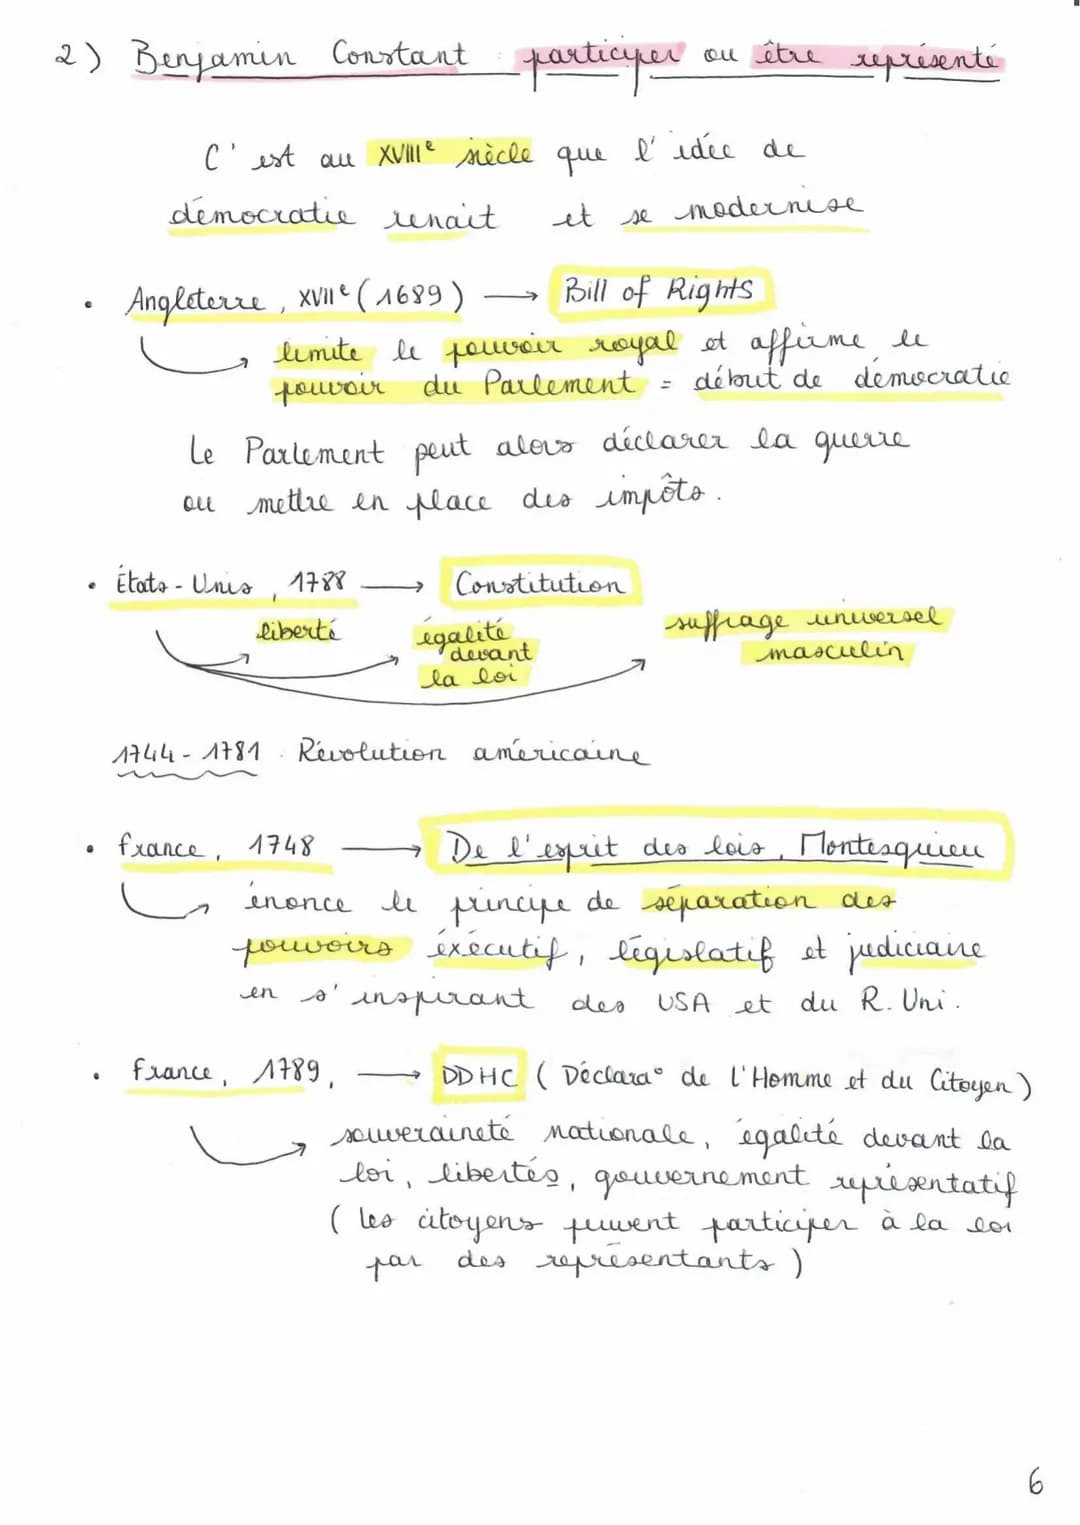 2) Benjamin Constant : participer ou être représenté
C'est au XVIIIe siècle que l'idée de
démocratie renait et se modernise
• Angleterre, XVIIe (1689) → Bill of Rights
limite le pouvoir royal et affirme le
pouvoir du Parlement = début de démocratie
Le Parlement peut alors déclarer la guerre
ou mettre en place des impôts.
• États-Unis, 1788 → Constitution
liberté égalité devant la loi suffrage universel masculin
1744-1781 : Révolution américaine
• France, 1748 → De l'esprit des lois, Montesquieu
énonce le principe de séparation des
pouvoirs éxécutif, législatif et judiciaire
en s'inspirant des USA et du R. Uni.
• France, 1789, → DDHC (Déclara° de l'Homme et du Citoyen)
souveraineté nationale, égalité devant la
loi, libertés, gouvernement représentatif
(les citoyens peuvent participer à la loi
par des représentants)
6